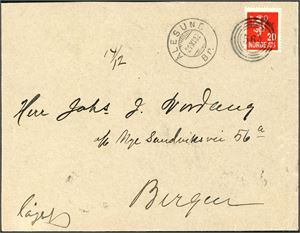 ÅLESUND
BP.
20
NORGE
14/12
Herr Johs J. Nordang
Nye Sandviksvei 56 a
Bergen